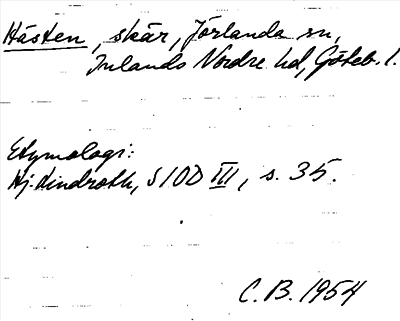 Hästen, skär, Jörlanda sn,
Inlands Nordre hd, Göteb. l.
Etymologi:
Hj. Lindroth, SIOD III, s. 35.
C. B. 1954